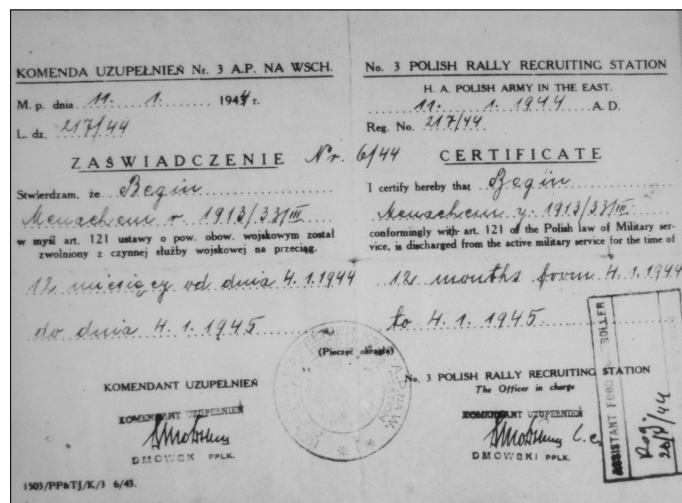 KOMENDA UZUPEŁNIEŃ Nr. 3 A.P. NA WSCH.
M. p. dnia 11. 1. 1944 r.
L. dz. 217/44
ZAŚWIADCZENIE Nr. 6/44
Stwierdzam, że Begin
Menachem r. 1913/33/III
w myśl art. 121 ustawy o pow. obow. wojskowym został
zwolniony z czynnej służby wojskowej na przeciąg.
12 miesięcy od dnia 4.1.1944
do dnia 4.1.1945
(Pieczęć okrągła)
KOMENDANT UZUPEŁNIEŃ
KOMENDANT UZUPEŁNIEŃ
DMOWSKI PPLK.
1503/PP&TJ/K/3 6/43.
No. 3 POLISH RALLY RECRUITING STATION
H. A. POLISH ARMY IN THE EAST.
11. 1. 1944 A.D.
Reg. No. 217/44
CERTIFICATE
I certify hereby that Begin
Menachem y. 1913/33/III
conformingly with art. 121 of the Polish law of Military ser-
vice, is discharged from the active military service for the time of
12 months from 4.1.1944
to 4.1.1945
No. 3 POLISH RALLY RECRUITING STATION
The Officer in charge
KOMENDANT UZUPEŁNIEŃ
DMOWSKI PPLK.
ASSISTANT FOOD CONTROLLER